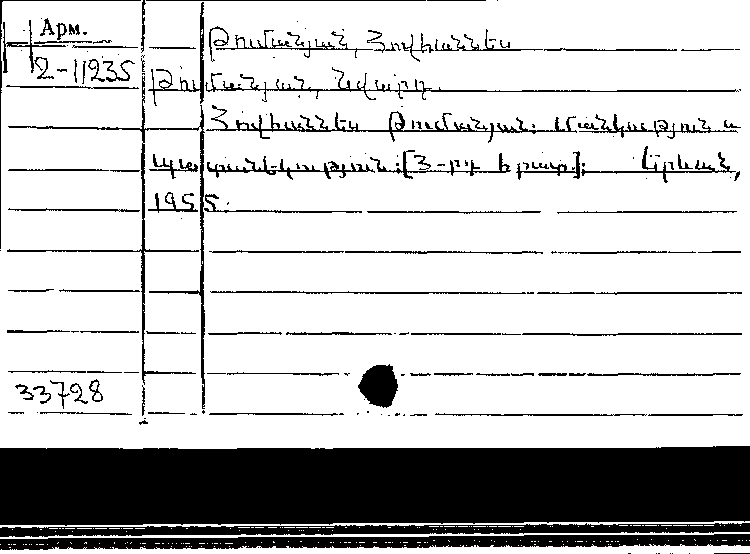 Арм.
Թումանյան, Հովհաննես
2-11235
Թումանյան, Նվարդ.
Հովհաննես Թումանյան: Մանկություն և
պատանեկություն:[3-րդ հրատ.]: Երևան,
1955:
33728